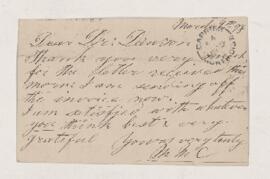 March 9th 98
Dear Dr. Dawson
Thank you very much
for the letter received this
morn. I am sending off
the invoice now.
I am satisfied with whatever
you think best & very
grateful Yours very truly